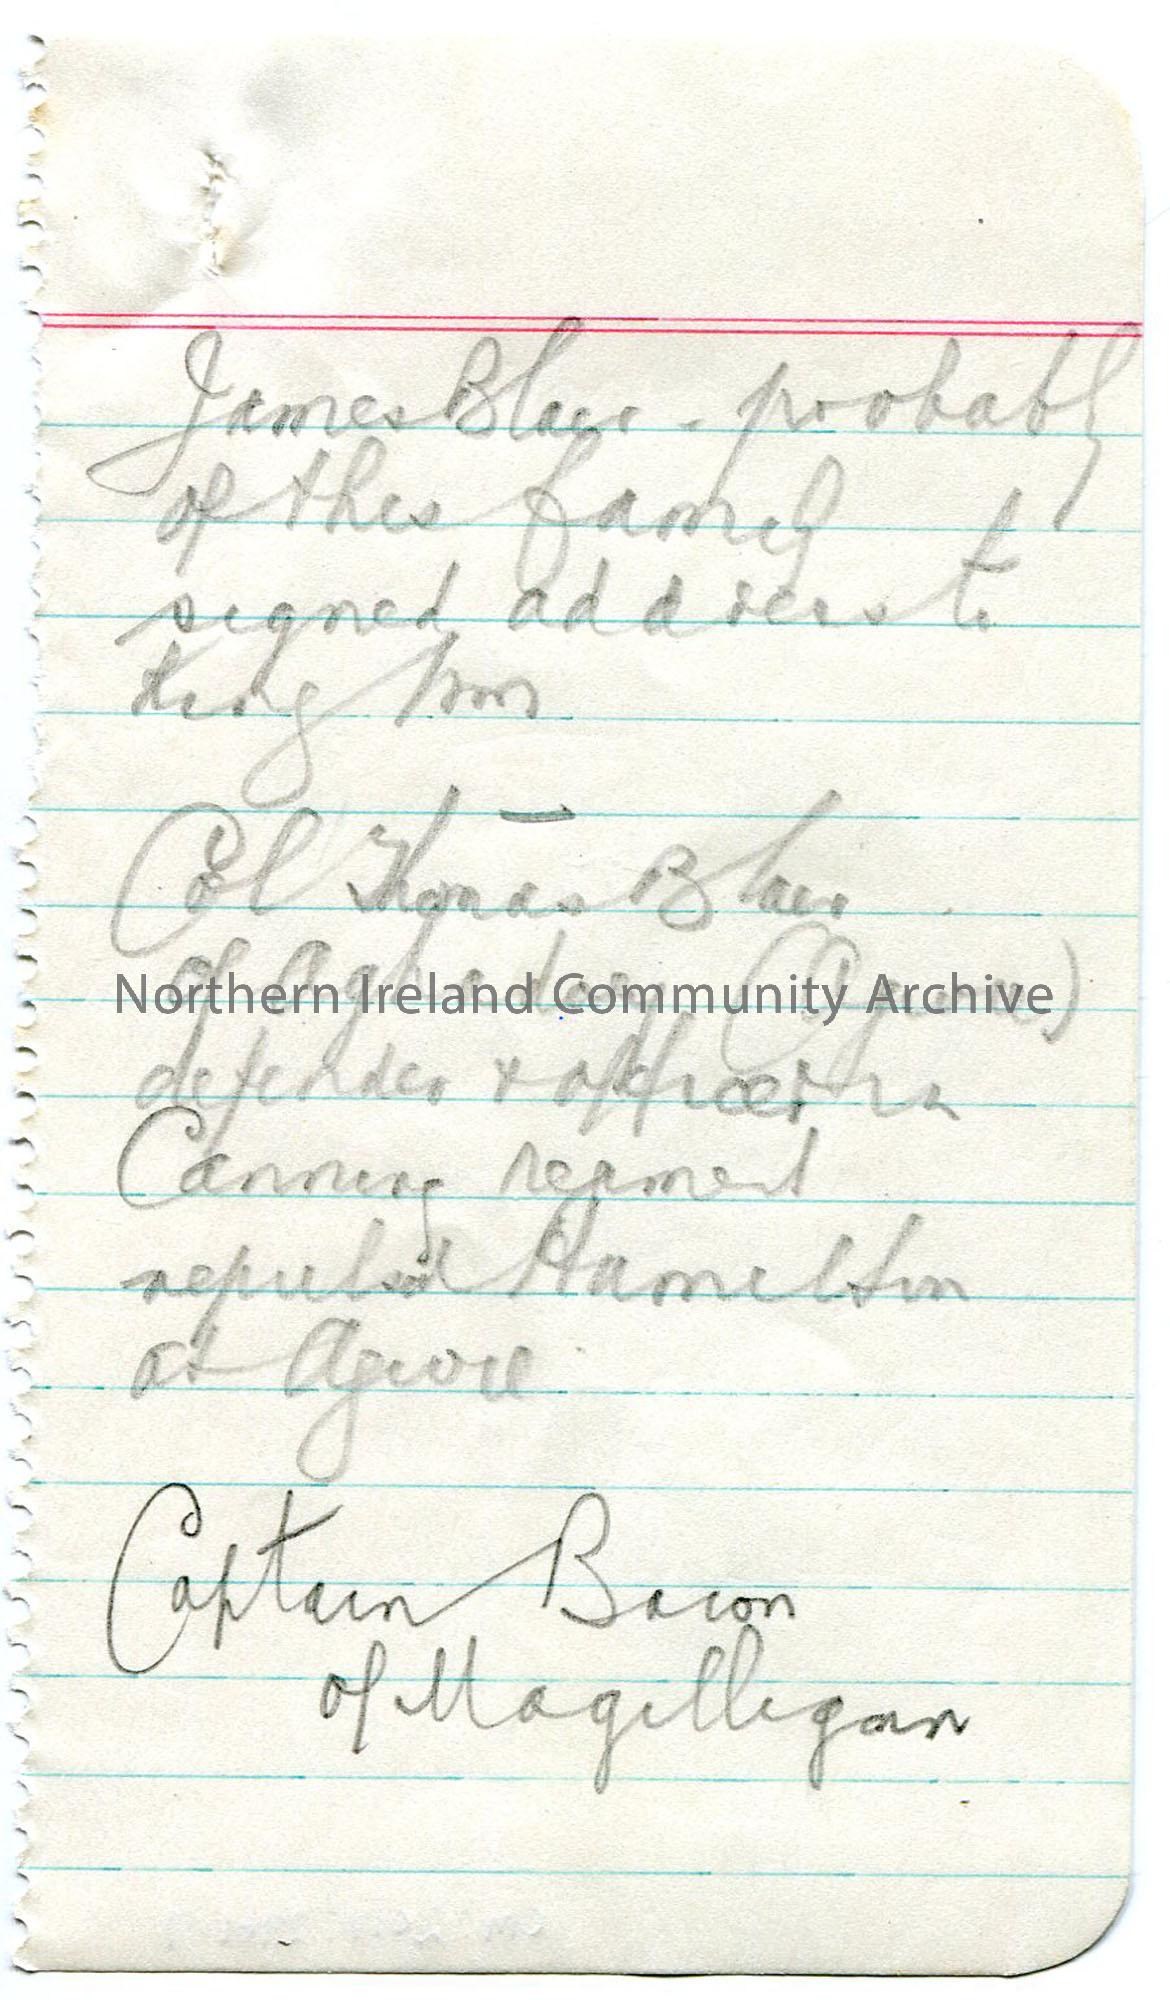 James Blair - probably
of this family
signed address to
King Wm
—
Col Thomas Blair
of Aghadowey (Agivey)
defender & officer in
Canning regiment
repulsed Hamilton
at Agivey
Captain Bacon
of Magilligan
Northern Ireland Community Archive